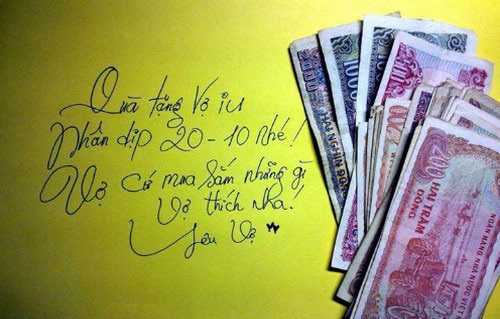 Quà tặng Vợ iu
Nhân dịp 20-10 nhé!
Vợ cứ mua sắm những gì
Vợ thích nha!
Yêu Vợ
2000
HAI NGÀN ĐỒNG
1000
200
HAI TRĂM
ĐỒNG
NGÂN HÀNG NHÀ NƯỚC VIỆT